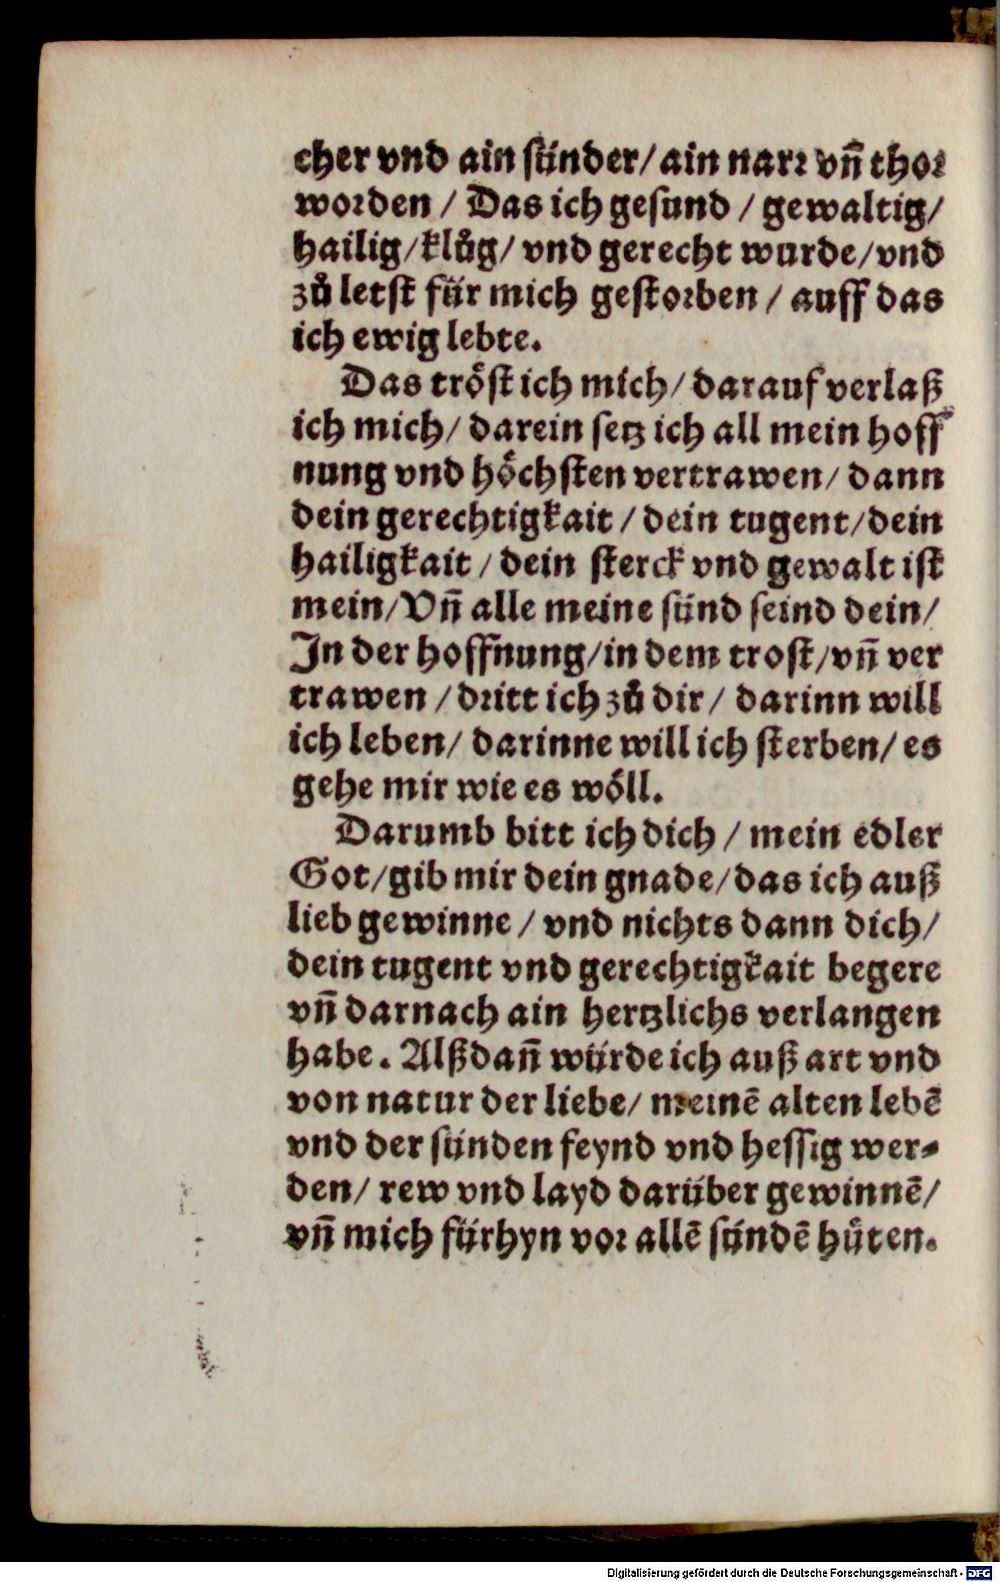 cher vnd ain sünder/ ain narr vñ thor
worden / Das ich gesund / gewaltig/
hailig/ klůg/ vnd gerecht wurde/ vnd
zů letst für mich gestorben / auff das
ich ewig lebte.
Das tröst ich mich/ darauf verlaß
ich mich/ darein setz ich all mein hoff
nung vnd höchsten vertrawen/ dann
dein gerechtigkait / dein tugent/ dein
hailigkait / dein sterck vnd gewalt ist
mein/ Vñ alle meine sünd seind dein/
In der hoffnung/ in dem trost/ vñ ver
trawen / dritt ich zů dir/ darinn will
ich leben/ darinne will ich sterben/ es
gehe mir wie es wöll.
Darumb bitt ich dich / mein edler
Got/ gib mir dein gnade/ das ich auß
lieb gewinne / vnd nichts dann dich/
dein tugent vnd gerechtigkait begere
vñ darnach ain hertzlichs verlangen
habe. Alßdañ würde ich auß art vnd
von natur der liebe/ meinē alten lebē
vnd der sünden feynd vnd hessig wer-
den/ rew vnd layd darüber gewinnē/
vñ mich fürhyn vor allē sündē hüten.
Digitalisierung gefördert durch die Deutsche Forschungsgemeinschaft - DFG